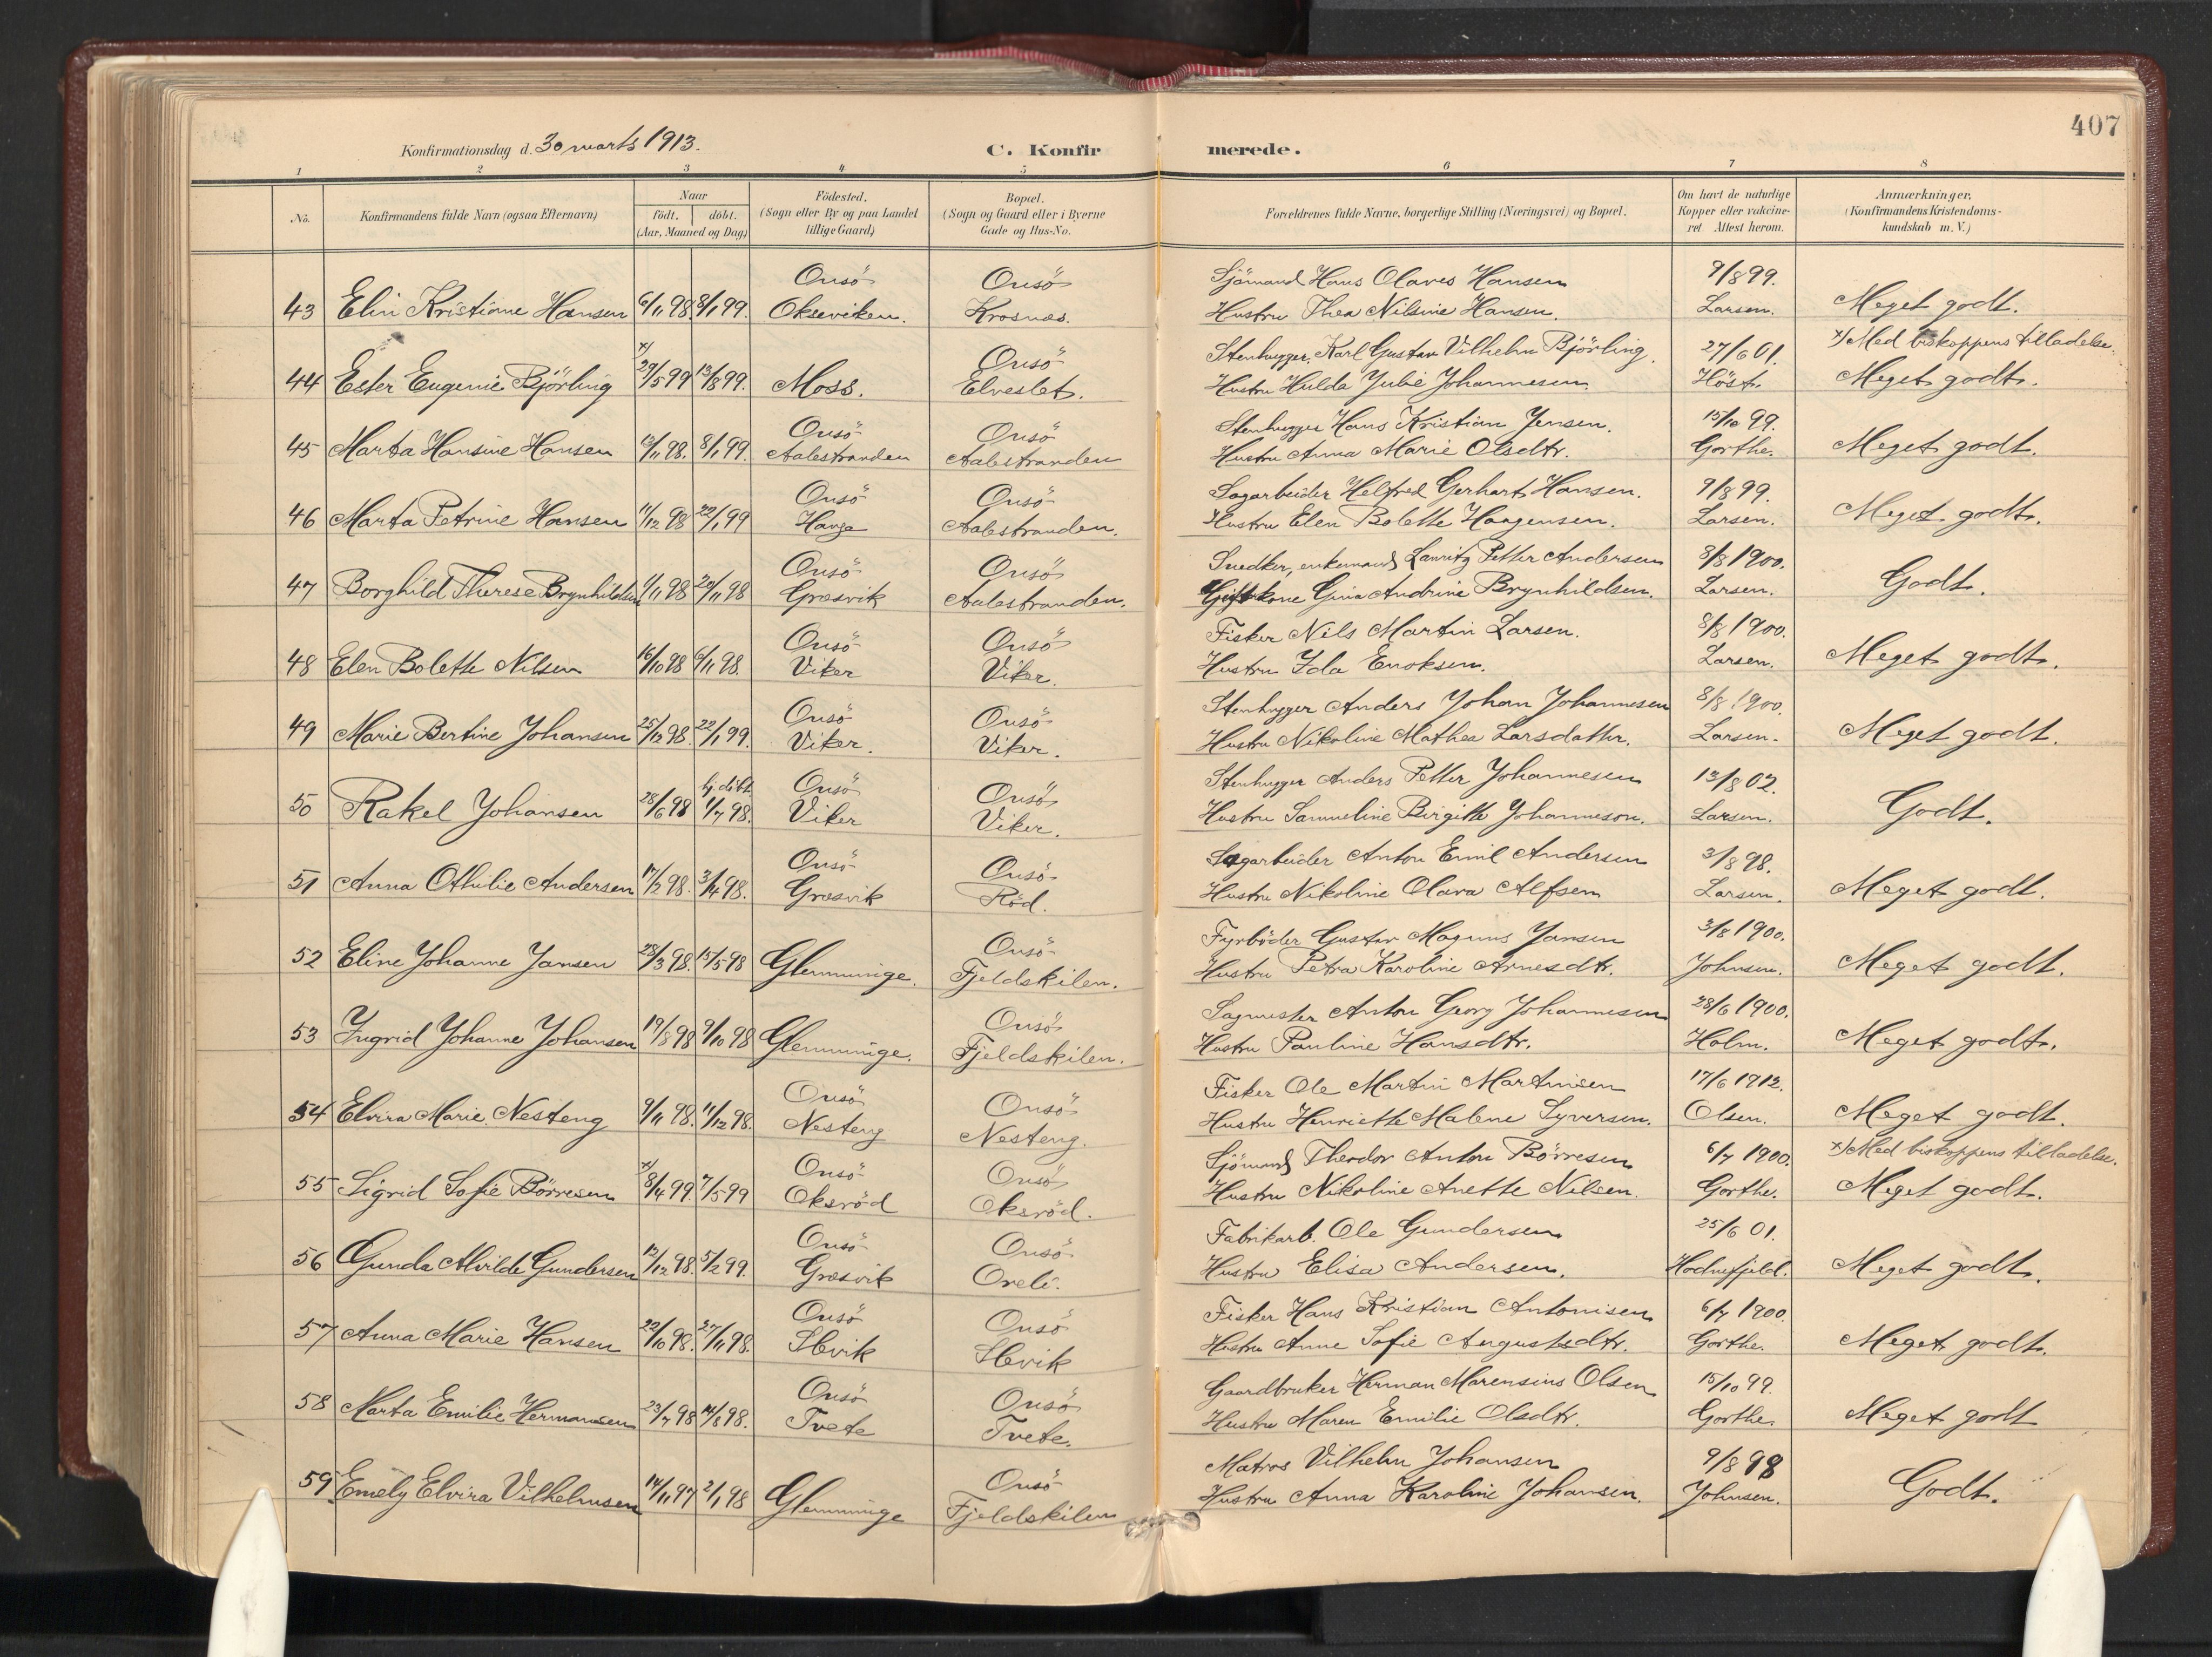 407
Konfirmationsdag d. 30 marts 1913.
C. Konfirmerede.
1 2 3 4 5 6 7 8
No.
Konfirmandens fulde Navn (ogsaa Efternavn)
Naar
födt. | döbt.
(Aar, Maaned og Dag)
Födested.
(Sogn eller By og paa Landet
tillige Gaard)
Bopæl.
(Sogn og Gaard eller i Byerne
Gade og Hus-No.
Forældrenes fulde Navne, borgerlige Stilling (Næringsvei) og Bopæl.
Om havt de naturlige
Kopper eller vakcine-
ret. Attest herom.
Anmærkninger,
(Konfirmandens Kristendoms-
kundskab m. V.)
Onsö Onsö Sjömand Hans Olaves Hansen 9/8 99.
43 Elin Kristiane Hansen 6/11 98. 8/1 99. Okseviken. Krosnæs. Hustru Thea Nilsine Hansen. Larsen. Meget godt.
x/ Onsö Stenhugger Karl Gustav Vilhelm Björling. 27/6 01. x/ Med biskoppens tilladelse.
44 Ester Eugenie Björling 29/5 99 13/8 99. Moss. Elveslet. Hustru Hulda Julie Johannesen. Höst. Meget godt.
Onsö Onsö Stenhugger Hans Kristian Jensen. 15/10 99.
45 Marta Hansine Hansen 13/11 98. 8/1 99. Aalestranden Aalestranden Hustru Anna Marie Olsdtr. Gorthe. Meget godt.
Onsö Onsö Sagarbeider Helfred Gerhart Hansen. 9/8 99.
46 Marta Petrine Hansen 11/12 98 22/1 99 Hauge Aalestranden. Hustru Elen Bolette Haagensen. Larsen. Meget godt.
Onsö Onsö Snedker, enkemand Lauritz Petter Andersen 8/8 1900.
47 Borghild Therese Brynhildsen 1/11 98 20/11 98 Græsvik Aalestranden. Gift kone Gina Andrine Brynhildsen. Larsen. Godt.
Onsö Onsö Fisker Nils Martin Larsen. 8/8 1900.
48 Elen Bolette Nilsen 16/10 98 6/11 98. Viker Viker. Hustru Ida Enoksen. Larsen. Meget godt.
Onsö Onsö Stenhugger Anders Johan Johannesen 8/8 1900.
49 Marie Bertine Johansen 25/12 98. 22/1 99. Viker. Viker. Hustru Nikoline Mathea Larsdatter. Larsen. Meget godt.
hj. döbt Onsö Onsö Stenhugger Anders Petter Johannesen 13/8 02.
50 Rakel Johansen 28/6 98 1/7 98. Viker Viker. Hustru Samueline Birgitte Johanneson. Larsen. Godt.
Onsö Onsö Sagarbeider Anton Emil Andersen 3/8 98.
51 Anna Othilie Andersen 17/2 98. 3/4 98. Græsvik Röd. Hustru Nikoline Olava Alfsen Larsen. Meget godt.
Onsö Fyrböder Gustav Magnus Jansen 3/8 1900.
52 Eline Johanne Jansen 28/3 98. 15/5 98 Glemminge. Fjeldskilen. Hustru Petra Karoline Arnesdtr. Johnsen. Meget godt.
Onsö Sagmester Anton Georg Johannesen 28/6 1900.
53 Ingrid Johanne Johansen 19/8 98 9/10 98 Glemminge. Fjeldskilen. Hustru Pauline Hansdtr. Holm. Meget godt.
Onsö Onsö Fisker Ole Martin Martinsen 17/6 1912.
54 Elvira Marie Nesteng 9/11 98. 11/12 98. Nesteng Nesteng. Hustru Henriette Malene Syversen. Olsen. Meget godt.
x/ Onsö Onsö Sjömand Theodor Anton Börresen 6/7 1900. x/ Med biskoppens tilladelse.
55 Sigrid Sofie Börresen 8/4 99. 7/5 99 Oksröd Oksröd. Hustru Nikoline Anette Nilsen. Gorthe. Meget godt.
Onsö Onsö Fabrikarb. Ole Gundersen 25/6 01.
56 Gunda Alvilde Gundersen 13/12 98. 5/2 99. Græsvik Oreli. Hustru Elisa Andersen. Hodnefjeld. Meget godt.
Onsö Onsö Fisker Hans Kristian Antonisen 6/7 1900.
57 Anna Marie Hansen 22/10 98. 27/11 98. Slevik Slevik Hustru Anne Sofie Augustsdtr. Gorthe. Meget godt.
Onsö Onsö Gaardbruker Herman Marensius Olsen 15/10 99.
58 Marta Emilie Hermansen 23/7 98 14/8 98. Tvete Tvete. Hustru Maren Emilie Olsdtr. Gorthe. Meget godt
Onsö Matros Vilhelm Johansen 9/8 98
59 Emely Elvira Vilhelmsen 14/11 97 2/1 98 Glemminge Fjeldskilen Hustru Anna Karoline Johansen. Johnsen. Godt.